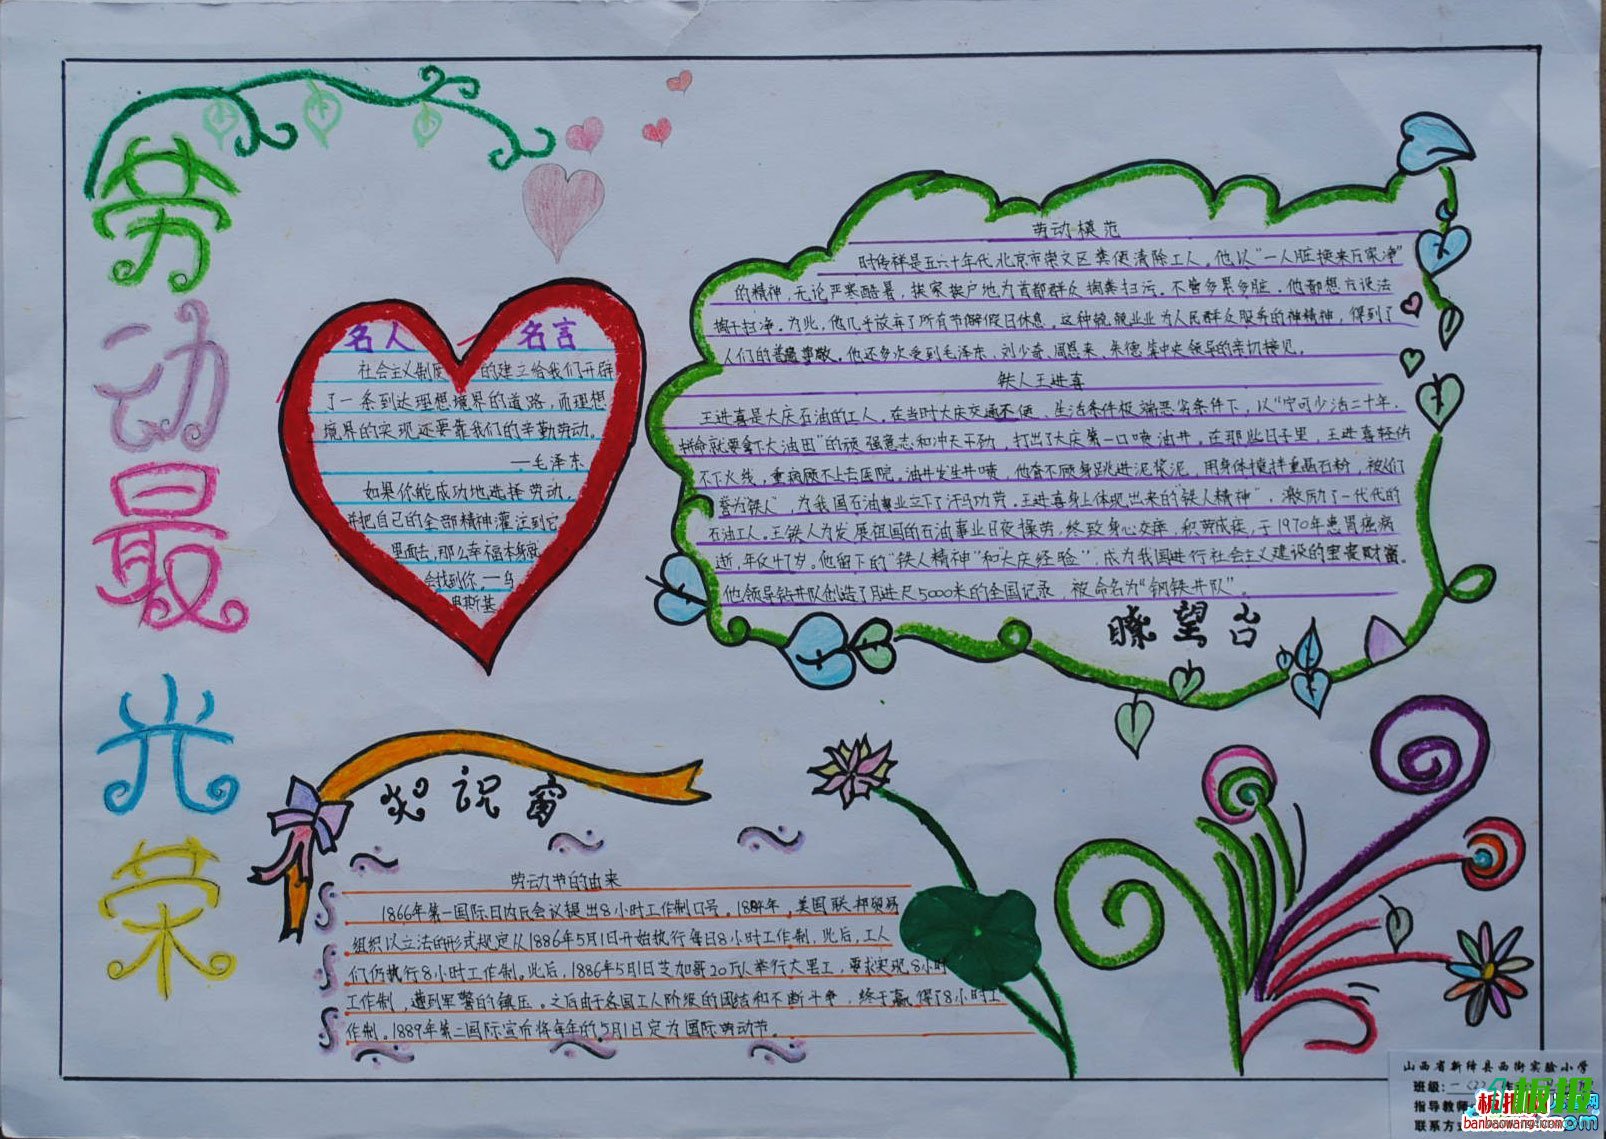 劳动最光荣
名人名言
社会主义制度的建立给我们开辟
了一条到达理想境界的道路,而理想
境界的实现还要靠我们的辛勤劳动。
—毛泽东
如果你能成功地选择劳动,
并把自己的全部精神灌注到它
里面去,那么幸福本身就
会找到你。—乌
申斯基
劳动模范
时传祥是五六十年代北京市崇文区粪便清除工人。他以“一人脏换来万家净”
的精神,无论严寒酷暑,挨家挨户地为首都群众掏粪扫污。不管多累多脏,他都想方设法
掏干扫净。为此,他几乎放弃了所有节假日休息。这种兢兢业业为人民群众服务的精神,得到了
人们的普遍尊敬。他还多次受到毛泽东、刘少奇、周恩来、朱德等中央领导的亲切接见。
铁人王进喜
王进喜是大庆石油的工人。在当时大庆交通不便、生活条件极端恶劣条件下,以“宁可少活二十年,
拼命就要拿下大油田”的顽强意志和冲天干劲,打出了大庆第一口喷油井。在那些日子里,王进喜轻伤
不下火线,重病顾不上去医院,油井发生井喷,他奋不顾身跳进泥浆泥,用身体搅拌重晶石粉,被人们
誉为“铁人”,为我国石油事业立下汗马功劳。王进喜身上体现出来的“铁人精神”,激励了一代代的
石油工人。王铁人为发展祖国的石油事业日夜操劳,终致身心交瘁,积劳成疾,于1970年患胃癌病
逝,年仅47岁。他留下的“铁人精神”和“大庆经验”,成为我国进行社会主义建设的宝贵财富。
他领导钻井队创造了月进尺5000米的全国记录,被命名为“钢铁井队”。
瞭望台
知识窗
劳动节的由来
1866年第一国际日内瓦会议提出8小时工作制口号。1884年,美国联邦贸易
组织以立法的形式规定从1886年5月1日开始执行每日8小时工作制,此后,工人
们仍执行8小时工作制。此后,1886年5月1日芝加哥20万人举行大罢工,要求实现8小时
工作制,遭到军警的镇压。之后由于各国工人阶级的团结和不断斗争,终于赢得了8小时工
作制。1889年第二国际宣布将每年的5月1日定为国际劳动节。
山西省新绛县西街实验小学
班级:
指导教师
联系方式
板报网
banbaowang.com